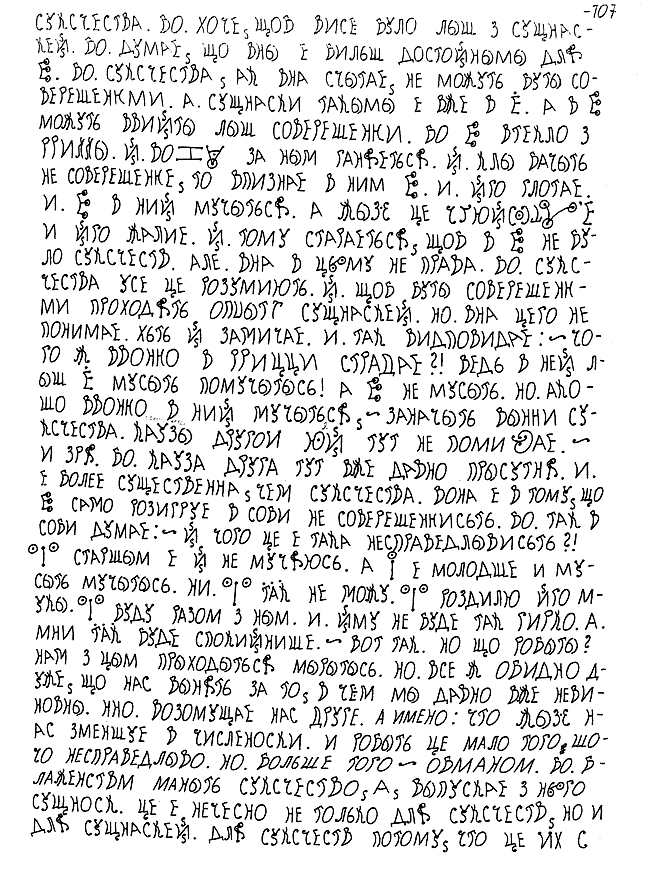 -107
СУКСЧЕСТВА. БО. ХОЧЕ, ЩОБ ВИСЕ БУЛО ЛЫШ З СУЩНАС-
КЕЙ. БО. ДУМАЕ, ЩО ВНО Е БИЛЬШ ДОСТОЙНОМО ДЛЯ
Ё. БО. СУКСЧЕСТВА, АК ВНА СЧЫТАЕ, НЕ МОЖУТЬ БУТЫ СО-
ВЕРЕШЕНКМИ. А. СУЩНАСКИ ТАКЫМЫ Е ВЖЕ В Ё. А В Ё
МОЖУТЬ ВВИЙТЫ ЛЫШ СОВЕРЕШЕНКИ. БО Ё ВТЕКЛО З
Й. БО ЗА НЫМ ГАНЯЕТЬСЯ. Й. КЛЫ БАЧЫТЬ
НЕ СОВЕРЕШЕНКЕ, ТО ВПИЗНАЕ В НИМ Ё. И. ЙГО ГЛОТАЕ.
И. Ё В НИЙ МУЧЫТЬСЯ. А ЦЕ Ё
И ЙГО ЖАЛИЕ. Й. ТОМУ СТАРАЕТЬСЯ, ЩОБ В Ё НЕ БУ-
ЛО СУКСЧЕСТВ. АЛЕ. ВНА В ЦЬОМУ НЕ ПРАВА. БО. СУКС-
ЧЕСТВА УСЕ ЦЕ РОЗУМИЮТЬ. Й. ЩОБ БУТЫ СОВЕРЕШЕНК-
МИ ПРОХОДЯТЬ ОПЫТ СУЩНАСКЕЙ. НО. ВНА ЦЕГО НЕ
ПОНИМАЕ. ХОТЬ Й ЗАМИЧАЕ. И. ТАК ВИДПОВИДАЕ:~ ЧО-
ГО Ж ВВОНКО В СТРАДАЕ?! ВЕДЬ В НЕЙ Л-
ЫШ Ё МУСЫТЬ ПОМУЧЫТЫСЬ! А Ё НЕ МУСЫТЬ. НО. АКО-
ЩО ВВОНКО В НИЙ МУЧЫТЬСЯ,~ ЗАНАЧЫТЬ ВЫННИ СУ-
КСЧЕСТВА. КАУЗЫ ДРУГОИ ТУТ НЕ АЕ.~
И ЗРЯ. БО. КАУЗА ДРУГА ТУТ ВЖЕ ДАВНО ПРЫСУТНЯ. И.
Е БОЛЕЕ СУЩЕСТВЕННА, ЧЕМ СУКСЧЕСТВА. ВОНА Е В ТОМУ, ЩО
Ё САМО РОЗИГРУЕ В СОБИ НЕ СОВЕРЕШЕНКИСЬТЬ. БО. ТАК В
СОБИ ДУМАЕ:~ Й ЧОГО ЦЕ Е ТАКА НЕСПРАВЕДЛОВИСЬТЬ?!
СТАРШЫМ Е Й НЕ МУЧАЮСЬ. А Е МОЛОДШЕ И МУ-
СЫТЬ МУЧЫТЫСЬ. НИ. ТАК НЕ МОЖУ. РОЗДИЛЮ ЙГО М-
УКЫ. БУДУ РАЗОМ З НЫМ. И. ЙМУ НЕ БУДЕ ТАК ГИРКО. А.
МНИ ТАК БУДЕ СПОКИЙНИШЕ.~ ВОТ ТАК. НО ЩО РОБЫТЫ?
НАМ З ЦЫМ ПРЫХОДЫТЬСЯ МЫРЫТЫСЬ. НО. ВСЕ Ж ОБИДНО Д-
УЖЕ, ЩО НАС ВЫНЯТЬ ЗА ТО, В ЧЕМ МЫ ДАВНО ВЖЕ НЕВИ-
НОВНЫ. ННО. ВОЗОМУЩАЕ НАС ДРУГЕ. А ИМЕНО: ЧТО Н-
АС ЗМЕНШУЕ В ЧИСЛЕНОСКИ. И РОБЫТЬ ЦЕ МАЛО ТОГО, ШО-
ЧО НЕСПРАВЕДЛЫВО. НО. БОЛЬШЕ ТОГО ~ ОБМАНОМ. БО. Б-
ЛАЖЕНСТВМ МАНЫТЬ СУКСЧЕСТВО, А, ВЫПУСКАЕ З НЬОГО
СУЩНОСК. ЦЕ Е НЕЧЕСНО НЕ ТОЛЬКО ДЛЯ СУКСЧЕСТВ, НО И
ДЛЯ СУЩНАСКЕЙ. ДЛЯ СУКСЧЕСТВ ПОТОМУ, ЧТО ЦЕ ИХ С